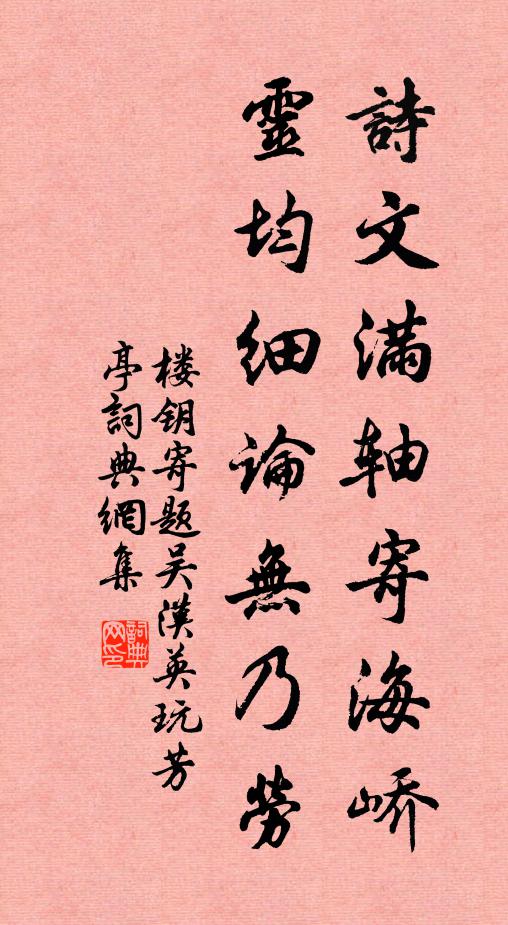 詩文满軸寄海峤
靈均细論無乃勞
楼钥寄题吴漢英玩芳
亭詞典網集
詞典网印